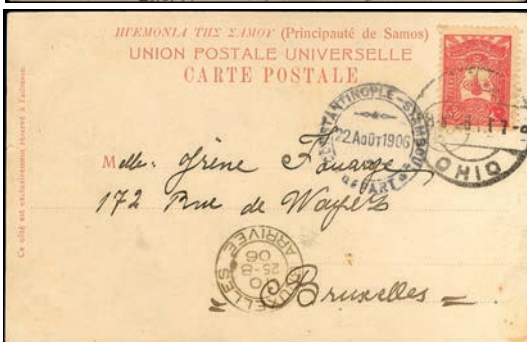 ΗΓΕΜΟΝΙΑ ΤΗΣ ΣΑΜΟΥ (Principauté de Samos)
UNION POSTALE UNIVERSELLE
CARTE POSTALE
Ce côté est exclusivement réservé à l'adresse.
CONSTANTINOPLE-STAMBOUL
22 AOÛT 1906
DEPART
Melle: Irène
172 Rue de
BRUXELLES
ARRIVEE
25-8
06
" Bruxelles =